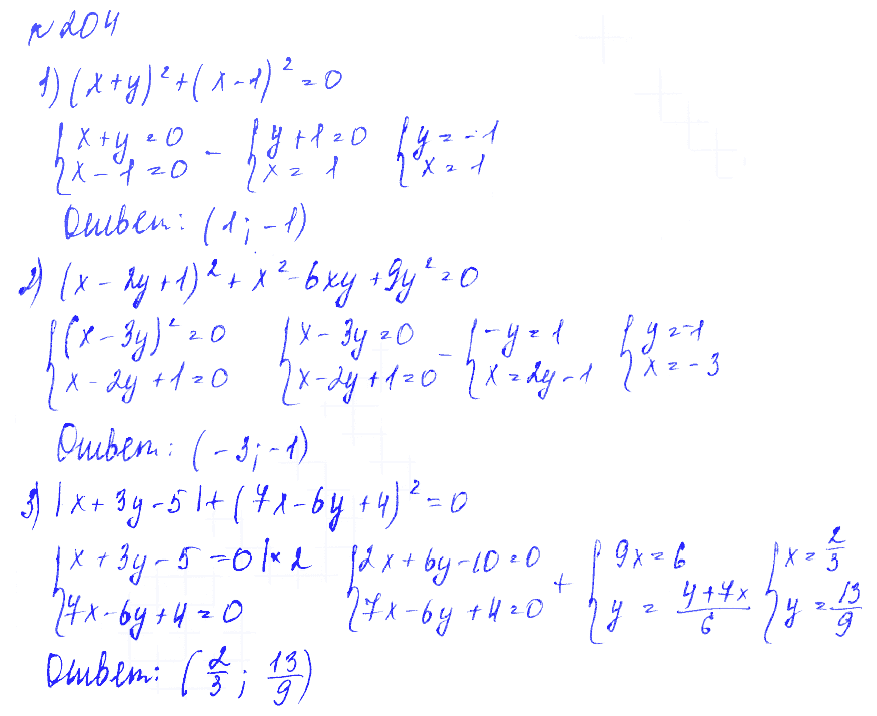 № 204
1) (x+y)² + (x-1)² = 0
{ x+y=0 x-1=0 - { y+1=0 x=1 { y=-1 x=1
Ответ: (1; -1)
2) (x-2y+1)² + x²-6xy+9y² = 0
{ (x-3y)²=0 x-2y+1=0 { x-3y=0 x-2y+1=0 - { -y=1 x=2y-1 { y=-1 x=-3
Ответ: (-3; -1)
3) |x+3y-5| + (7x-6y+4)² = 0
{ x+3y-5=0 |×2 7x-6y+4=0 { 2x+6y-10=0 7x-6y+4=0 + { 9x=6 y=(4+7x)/6 { x=2/3 y=13/9
Ответ: (2/3; 13/9)